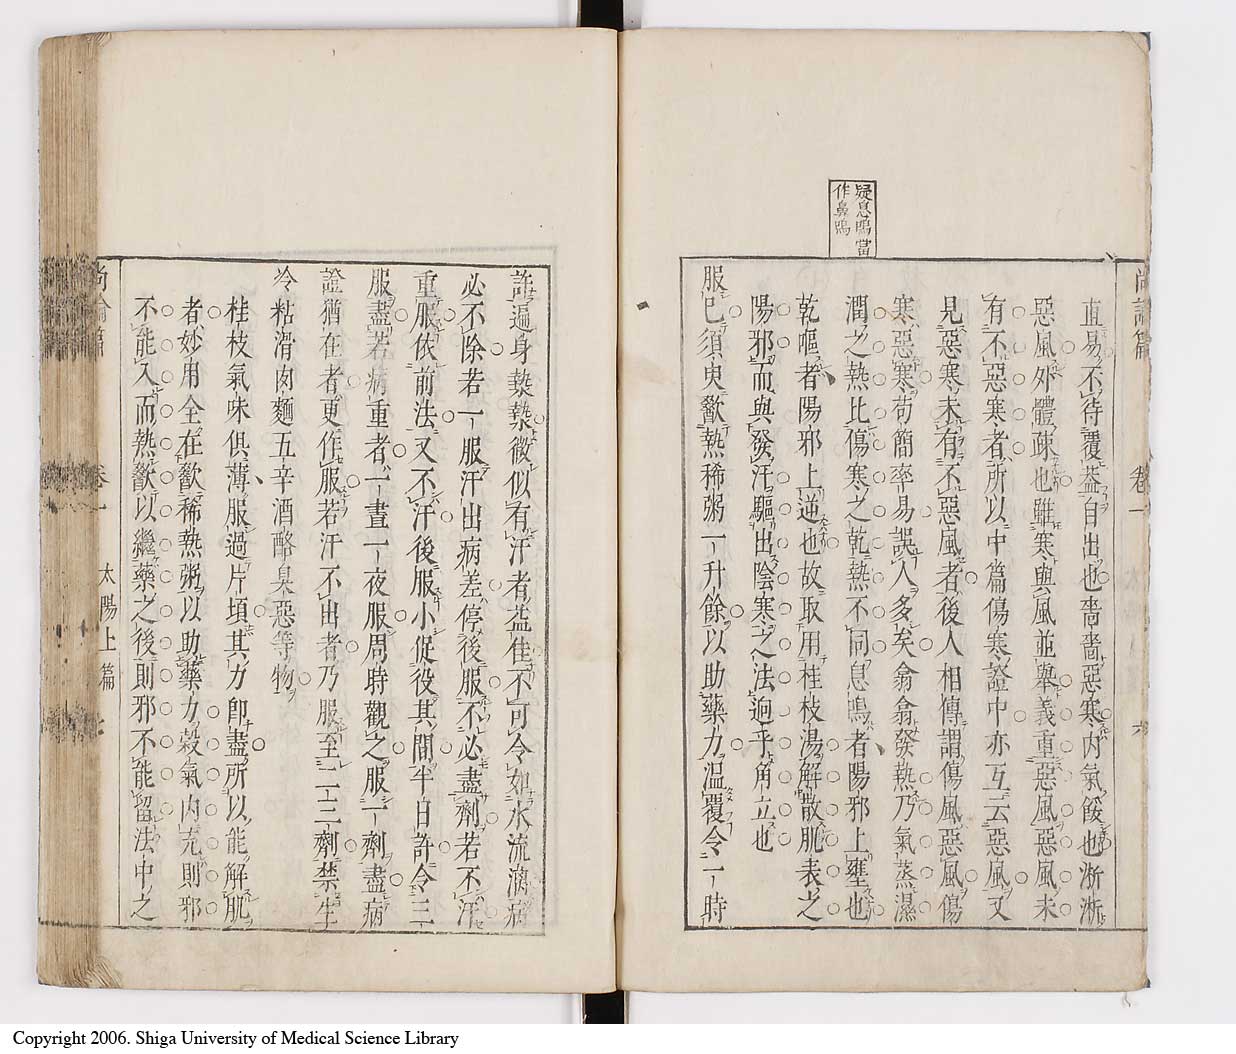 疑息鳴當
作鼻鳴
直易不待覆葢自出也嗇嗇惡寒内氣餒也淅淅
惡風外體疎也雖寒與風並舉義重惡風惡風未
有不惡寒者所以中篇傷寒證中亦互云惡風又
見惡寒未有不惡風者後人相傳謂傷風惡風傷
寒惡寒苟簡率易誤人多矣翕翕發熱乃氣蒸濕
潤之熱比傷寒之乾熱不同息鳴者陽邪上壅也
乾嘔者陽邪上逆也故取用桂枝湯解散肌表之
陽邪而與發汗驅出陰寒之法迥乎角立也
服已須臾歠熱稀粥一升餘以助藥力溫覆令一時
許遍身漐漐微似有汗者益佳不可令如水流漓病
必不除若一服汗出病差停後服不必盡劑若不汗
重服依前法又不汗後服小促役其間半日許令三
服盡若病重者一晝一夜服周時觀之服一劑盡病
證猶在者更作服若汗不出者乃服至二三劑禁生
冷粘滑肉麵五辛酒酪臭惡等物
桂枝氣味俱薄服過片頃其力卽盡所以能解肌
者妙用全在歠稀熱粥以助藥力穀氣内充則邪
不能入而熱歠以繼藥之後則邪不能留法中之
卷一 太陽上篇